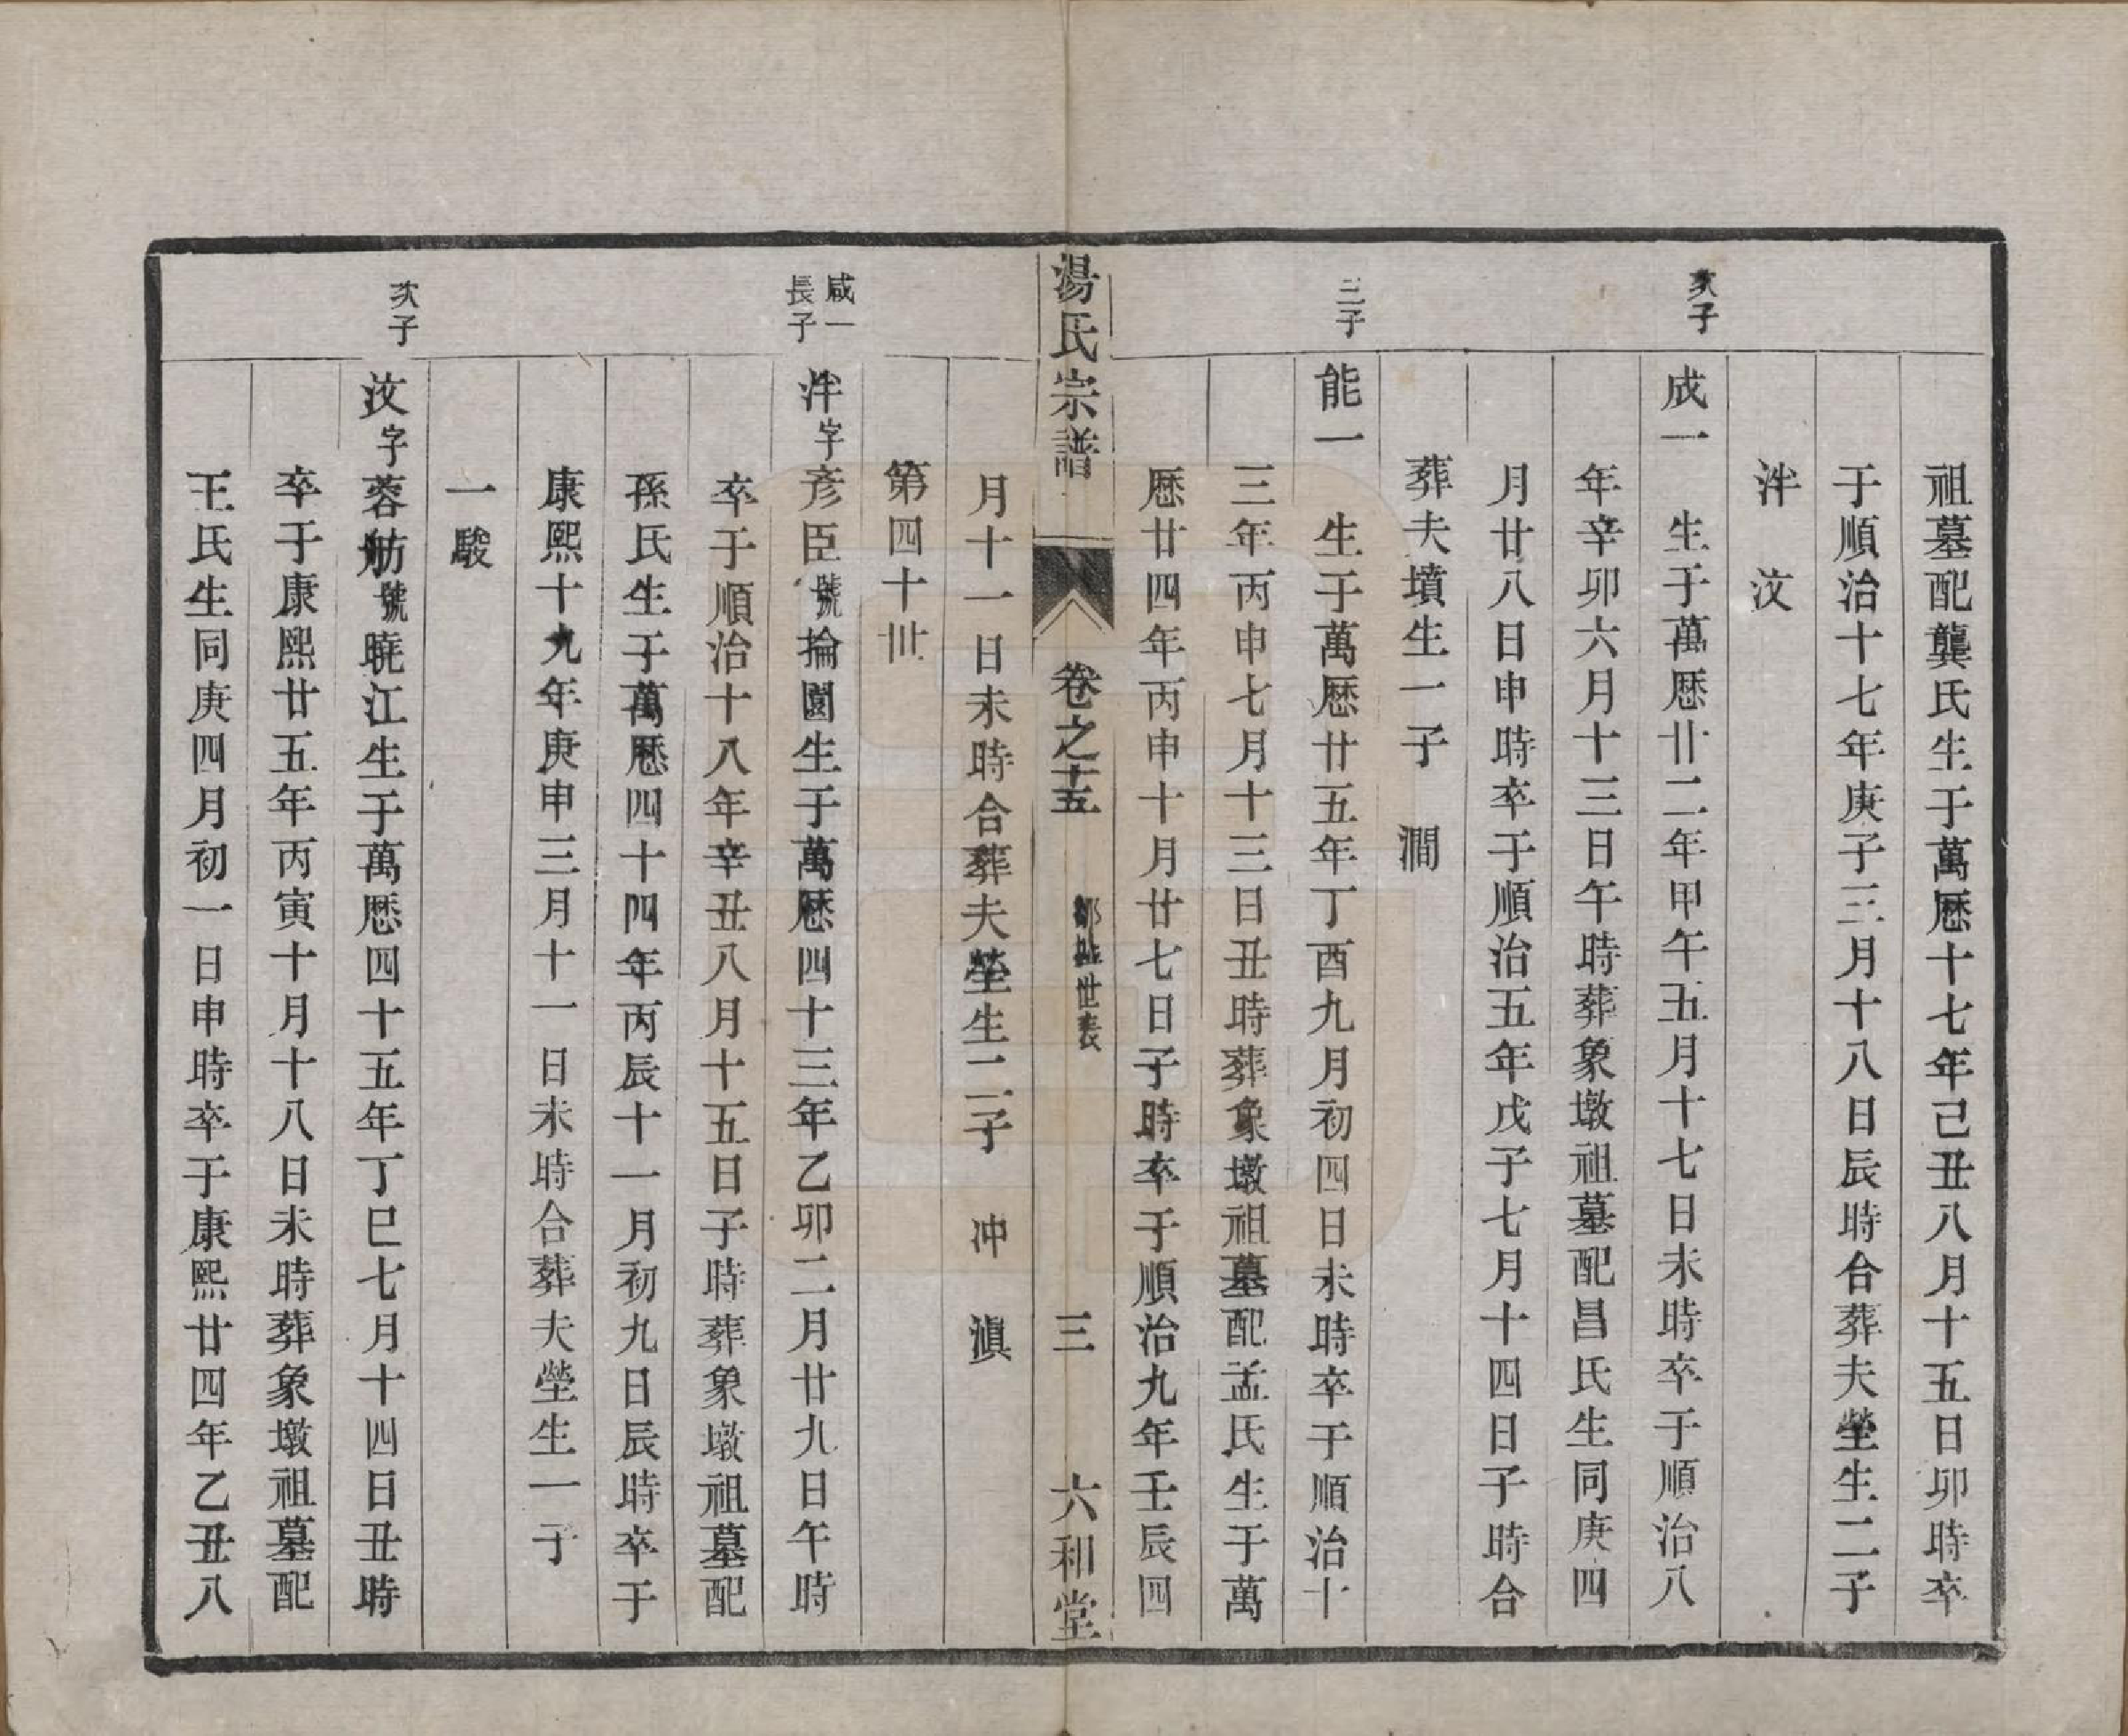 祖墓配龔氏生于萬厯十七年己丑八月十五日卯時卒
于順治十七年庚子三月十八日辰時合葬夫塋生二子
泮 汶
次子
成一 生于萬厯卄二年甲午五月十七日未時卒于順治八
年辛卯六月十三日午時葬象墩祖墓配昌氏生同庚四
月廿八日申時卒于順治五年戊子七月十四日子時合
葬夫墳生一子 澗
三子
能一 生于萬厯廿五年丁酉九月初四日未時卒于順治十
三年丙申七月十三日丑時葬象墩祖墓配孟氏生于萬
厯廿四年丙申十月廿七日子時卒于順治九年壬辰四
湯氏宗譜 卷之十五 世表 三 六和堂
月十一日未時合葬夫塋生二子 冲 滇
第四十卅
咸一
長子
泮字彦臣號掄園生于萬厯四十三年乙卯二月廿九日午時
卒于順治十八年辛丑八月十五日子時葬象墩祖墓配
孫氏生于萬厯四十四年丙辰十一月初九日辰時卒于
康熙十九年庚申三月十一日未時合葬夫塋生一子
一駿
次子
汶字蓉舫號曉江生于萬厯四十五年丁巳七月十四日丑時
卒于康熙廿五年丙寅十月十八日未時葬象墩祖墓配
王氏生同庚四月初一日申時卒于康熙廿四年乙丑八